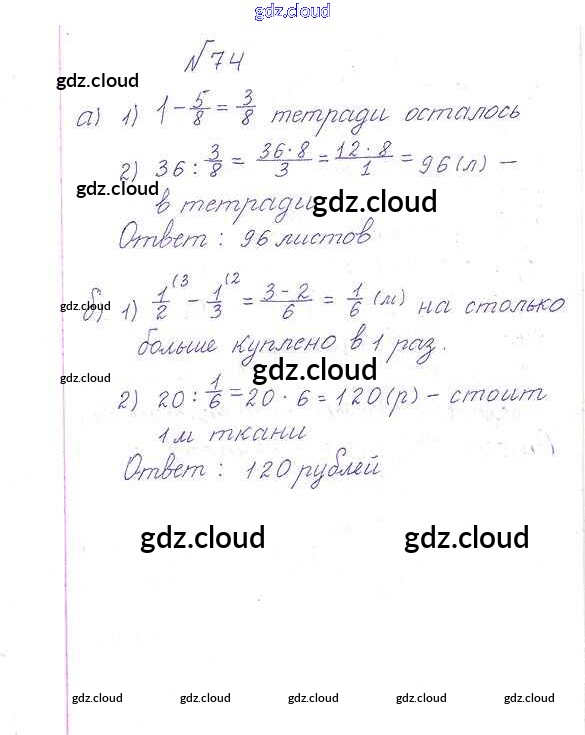 gdz.cloud
№74
gdz.cloud
а) 1) 1 - 5/8 = 3/8 тетради осталось
2) 36 : 3/8 = 36·8/3 = 12·8/1 = 96 (л) -
gdz.cloud
в тетради gdz.cloud
Ответ: 96 листов
gdz.cloud
б) 1) 1/2 (3 - 1/3 (2 = 3-2/6 = 1/6 (м) на столько
больше куплено в 1 раз.
gdz.cloud gdz.cloud
2) 20 : 1/6 = 20 · 6 = 120 (р) - стоит
1 м ткани
Ответ: 120 рублей
gdz.cloud gdz.cloud
gdz.cloud gdz.cloud gdz.cloud gdz.cloud gdz.cloud